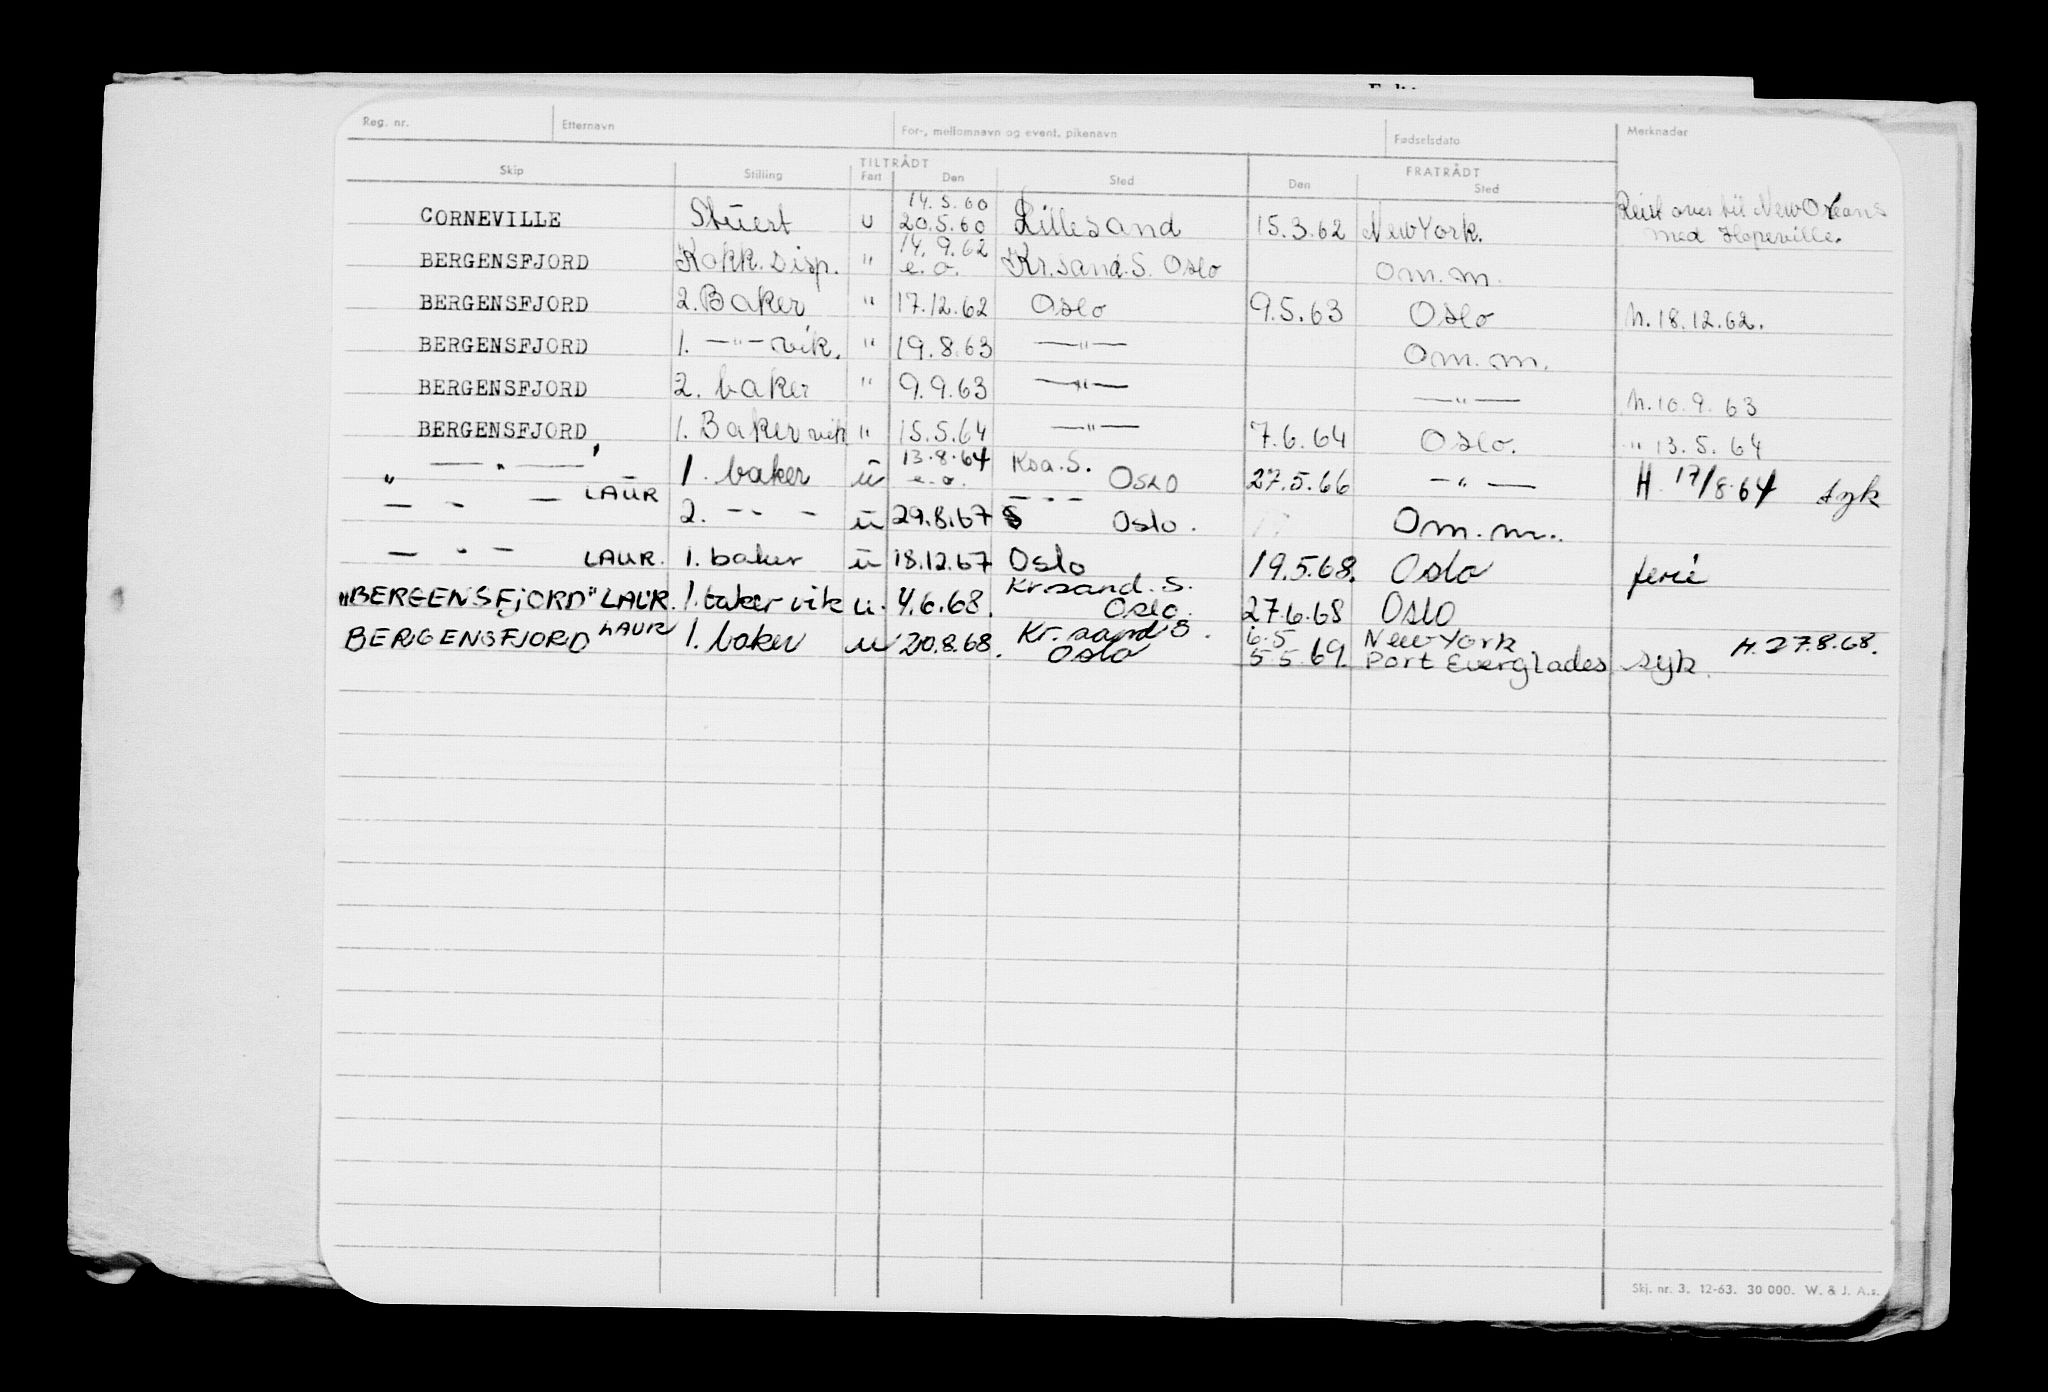 Reg. nr. Etternavn For-, mellomnavn og event. pikenavn Fødselsdato Merknader
TILTRÅDT FRATRÅDT
Skip Stilling Fart Den Sted Den Sted
14.5.60
CORNEVILLE Stuert u 20.5.60 Lillesand 15.3.62 New York. Reist over til New Orleans
med Hopeville.
14.9.62
BERGENSFJORD Kokk. Disp. " e.o. Kr.sand.S. Oslo Om.m.
BERGENSFJORD 2. Baker " 17.12.62 Oslo 9.5.63 Oslo h. 18.12.62.
BERGENSFJORD 1. —"— vik. " 19.8.63 —"— Om.m.
BERGENSFJORD 2. baker " 9.9.63 —"— —"— h. 10.9.63
BERGENSFJORD 1. Baker vik " 15.5.64 —"— 7.6.64 Oslo. " 13.5.64
13.8.64 Ksa.S.
— " — 1. baker u e.o. Oslo 27.5.66 —"— H. 17/8.64 syk
" — - — LAUR 2. - - - u 29.8.67 Oslo. Om.m.
— " — LAUR. 1. baker u 18.12.67 Oslo 19.5.68. Oslo ferie
Kr.sand.S.
"BERGENSFJORD" LAUR. 1. baker vik u. 4.6.68. Oslo. 27.6.68 Oslo
BERGENSFJORD LAUR 1. baker u 20.8.68. Kr.sand S. 6.5 New York H. 27.8.68.
Oslo 5.5.69. Port Everglades syk.
Skj. nr. 3. 12-63. 30 000. W. & J. A.s.